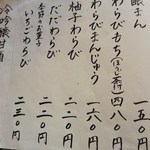 銀まん 一五〇円
わらびもち(ほうじ茶付) 四八〇円
わらびまんじゅう 一六〇円
柚子わらび 二二〇円
だだわらび 二二〇円
季節の和菓子
いちごわらび 二三〇円
冷吟醸甘酒